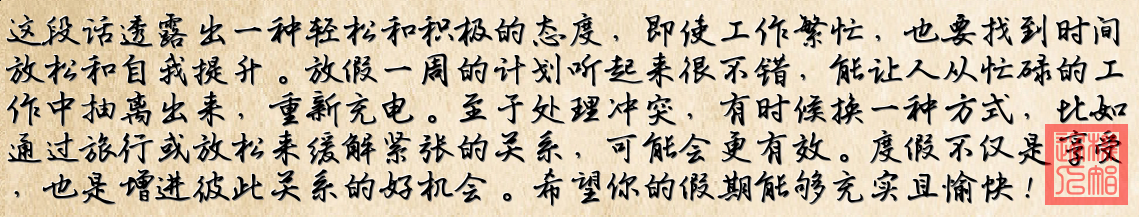 这段话透露出一种轻松和积极的态度，即使工作繁忙，也要找到时间
放松和自我提升。放假一周的计划听起来很不错，能让人从忙碌的工
作中抽离出来，重新充电。至于处理冲突，有时候换一种方式，比如
通过旅行或放松来缓解紧张的关系，可能会更有效。度假不仅是享受
，也是增进彼此关系的好机会。希望你的假期能够充实且愉快！